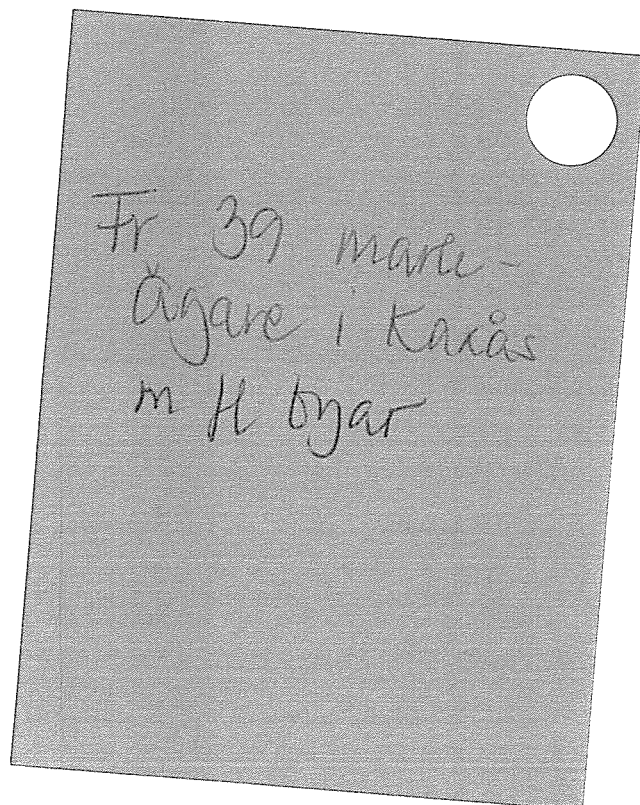 Fr 39 mark-
ägare i Kaxås
m fl byar